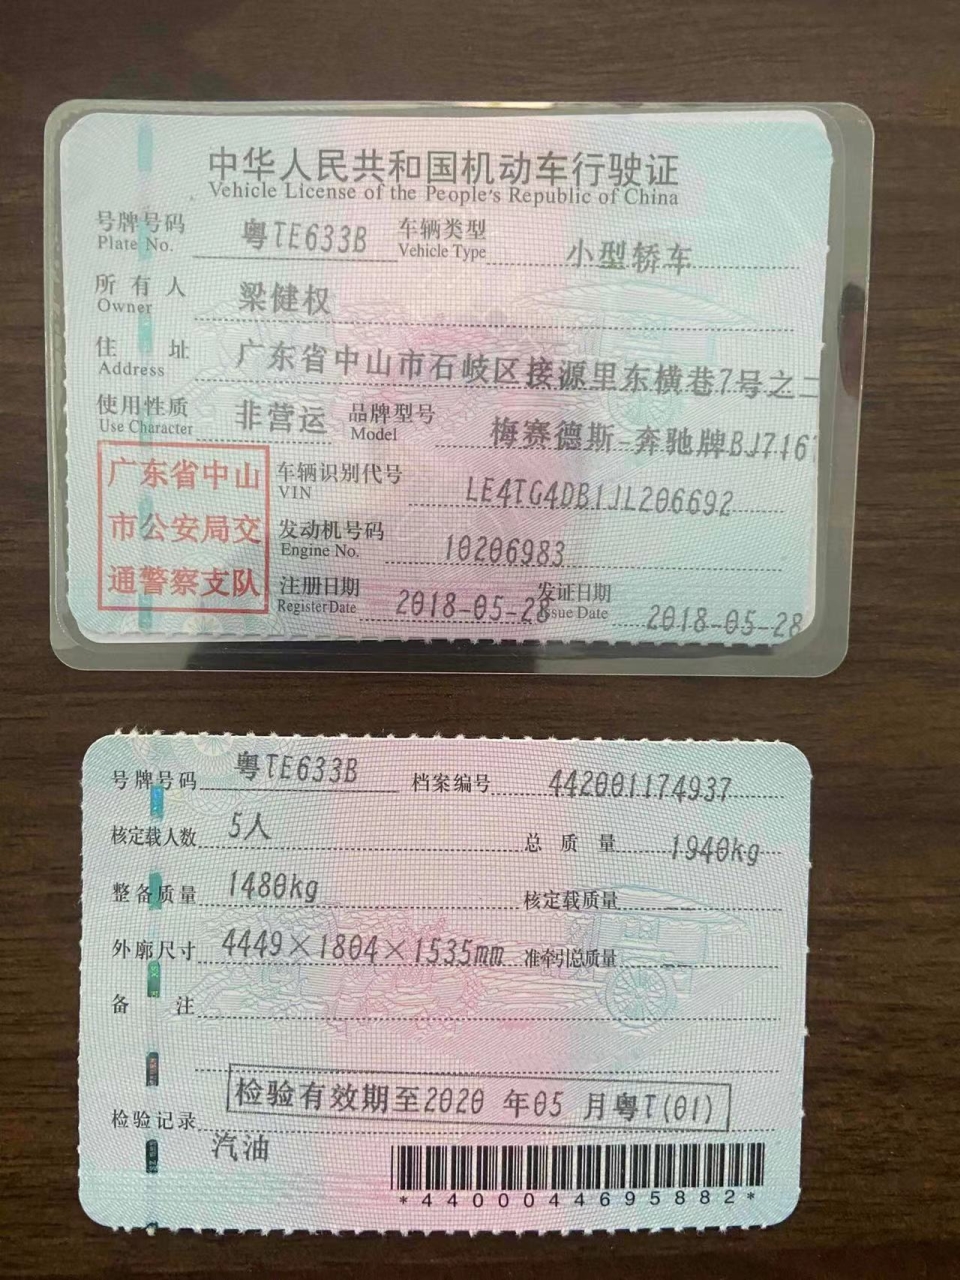 中华人民共和国机动车行驶证
Vehicle License of the People's Republic of China
号牌号码 粤TE633B 车辆类型 小型轿车
Plate No. Vehicle Type
所有人 梁健权
Owner
住址 广东省中山市石岐区接源里东横巷7号之二
Address
使用性质 非营运 品牌型号 梅赛德斯-奔驰牌BJ716
Use Character Model
广东省中山
市公安局交
通警察支队
车辆识别代号 LE4TG4DB1JL206692
VIN
发动机号码 10206983
Engine No.
注册日期 2018-05-28 发证日期 2018-05-28
Register Date Issue Date
号牌号码 粤TE633B 档案编号 442001174937
核定载人数 5人 总质量 1940kg
整备质量 1480kg 核定载质量 --
外廓尺寸 4449×1804×1535mm 准牵引总质量 --
备注
检验有效期至2020 年05 月粤T(01)
检验记录
汽油
*4400044695882*